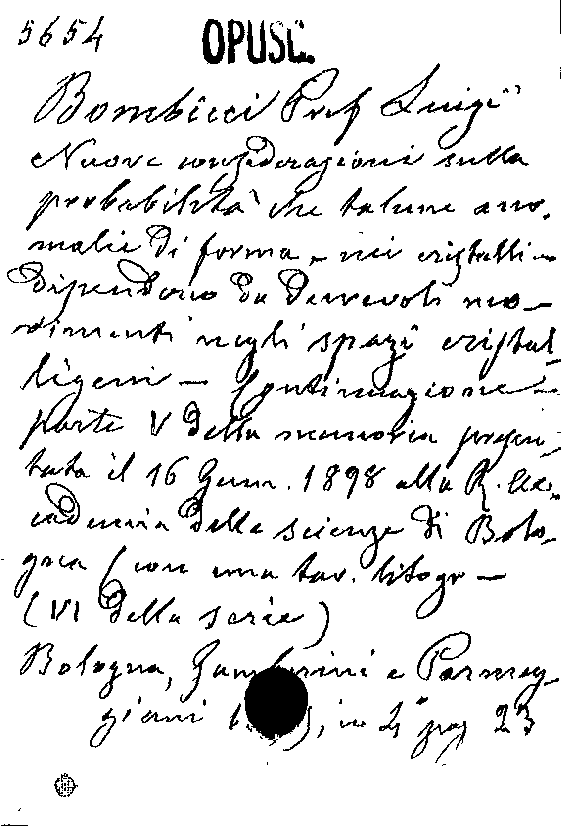 5654 OPUSC.
Bombicci Prof Luigi
Nuove considerazioni sulla
probabilità che talune ano-
malie di forma, nei cristalli
dipendono da durevoli mo-
vimenti negli spazi cristal-
ligeni — Continuazione —
parte V della memoria presen-
tata il 16 Genn. 1898 alla R. Ac-
cademia delle scienze di Bolo-
gna (con una tav. litogr —
(VI della serie)
Bologna, Gamberini e Parmeg-
giani in 4° pag 23